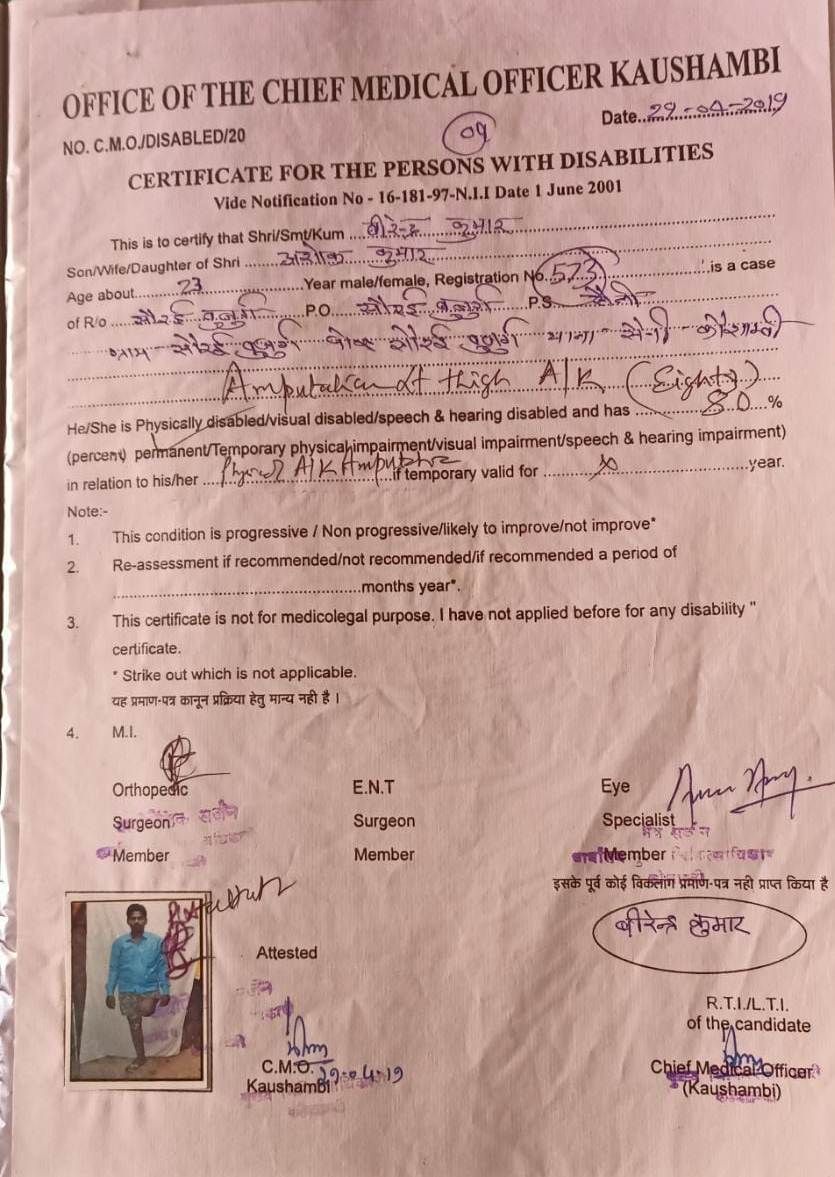 OFFICE OF THE CHIEF MEDICAL OFFICER KAUSHAMBI
NO. C.M.O./DISABLED/20
09
Date..29-04-2019
CERTIFICATE FOR THE PERSONS WITH DISABILITIES
Vide Notification No - 16-181-97-N.I.I Date 1 June 2001
This is to certify that Shri/Smt/Kum ....बीरेन्द्र कुमार
Son/Wife/Daughter of Shri ......अशोक कुमार
Age about............23............Year male/female, Registration No.573 is a case
of R/o ....सौरई बुजुर्ग.......P.O.....सौरई बुजुर्ग.....P.S.....सैनी
ग्राम सौरई बुजुर्ग पोस्ट सौरई बुजुर्ग थाना सैनी कौशाम्बी
Amputation at thigh A/K (Eighty)
He/She is Physically disabled/visual disabled/speech & hearing disabled and has ..............80....%
(percent) permanent/Temporary physical impairment/visual impairment/speech & hearing impairment)
in relation to his/her .... A/K .......if temporary valid for ........................year.
Note:-
1. This condition is progressive / Non progressive/likely to improve/not improve*
2. Re-assessment if recommended/not recommended/if recommended a period of
..................................................months year*.
3. This certificate is not for medicolegal purpose. I have not applied before for any disability "
certificate.
* Strike out which is not applicable.
यह प्रमाण-पत्र कानून प्रक्रिया हेतु मान्य नही है ।
4. M.I.
Orthopedic E.N.T Eye
Surgeon Surgeon Specialist
Member Member Member
इसके पूर्व कोई विकलांग प्रमाण-पत्र नही प्राप्त किया है
बीरेन्द्र कुमार
Attested
R.T.I./L.T.I.
of the candidate
C.M.O. 29.04.19
Kaushambi
Chief Medical Officer
(Kaushambi)